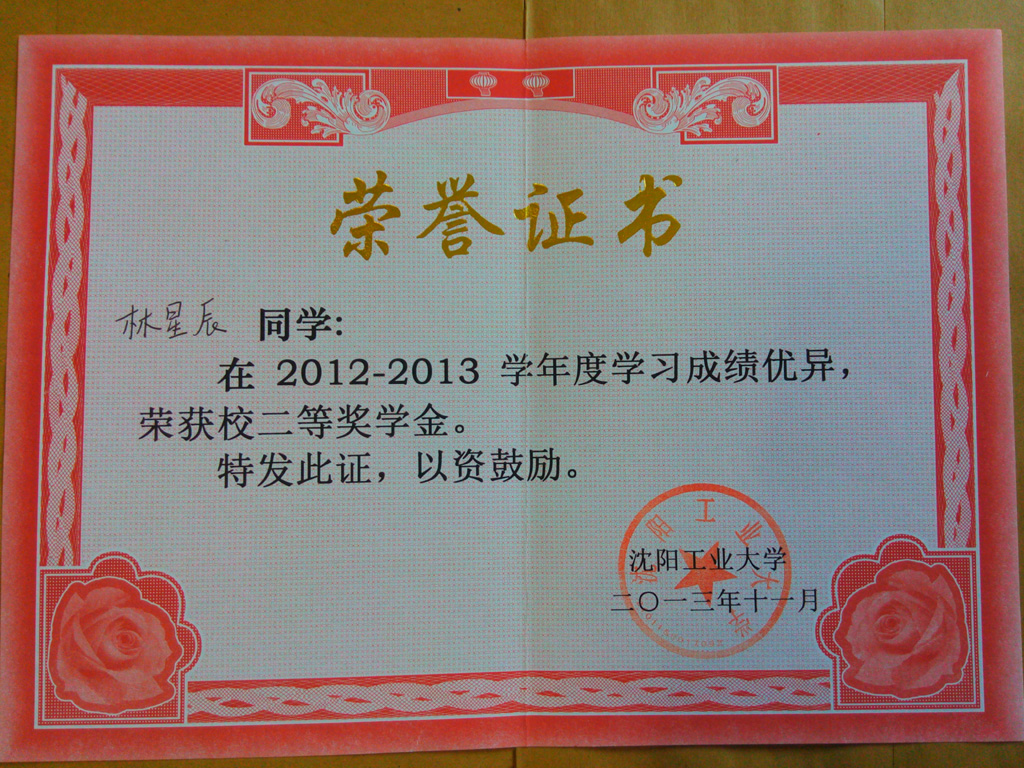 荣誉证书
林星辰 同学:
在 2012-2013 学年度学习成绩优异，
荣获校二等奖学金。
特发此证，以资鼓励。
沈阳工业大学
沈阳工业大学
二〇一三年十一月